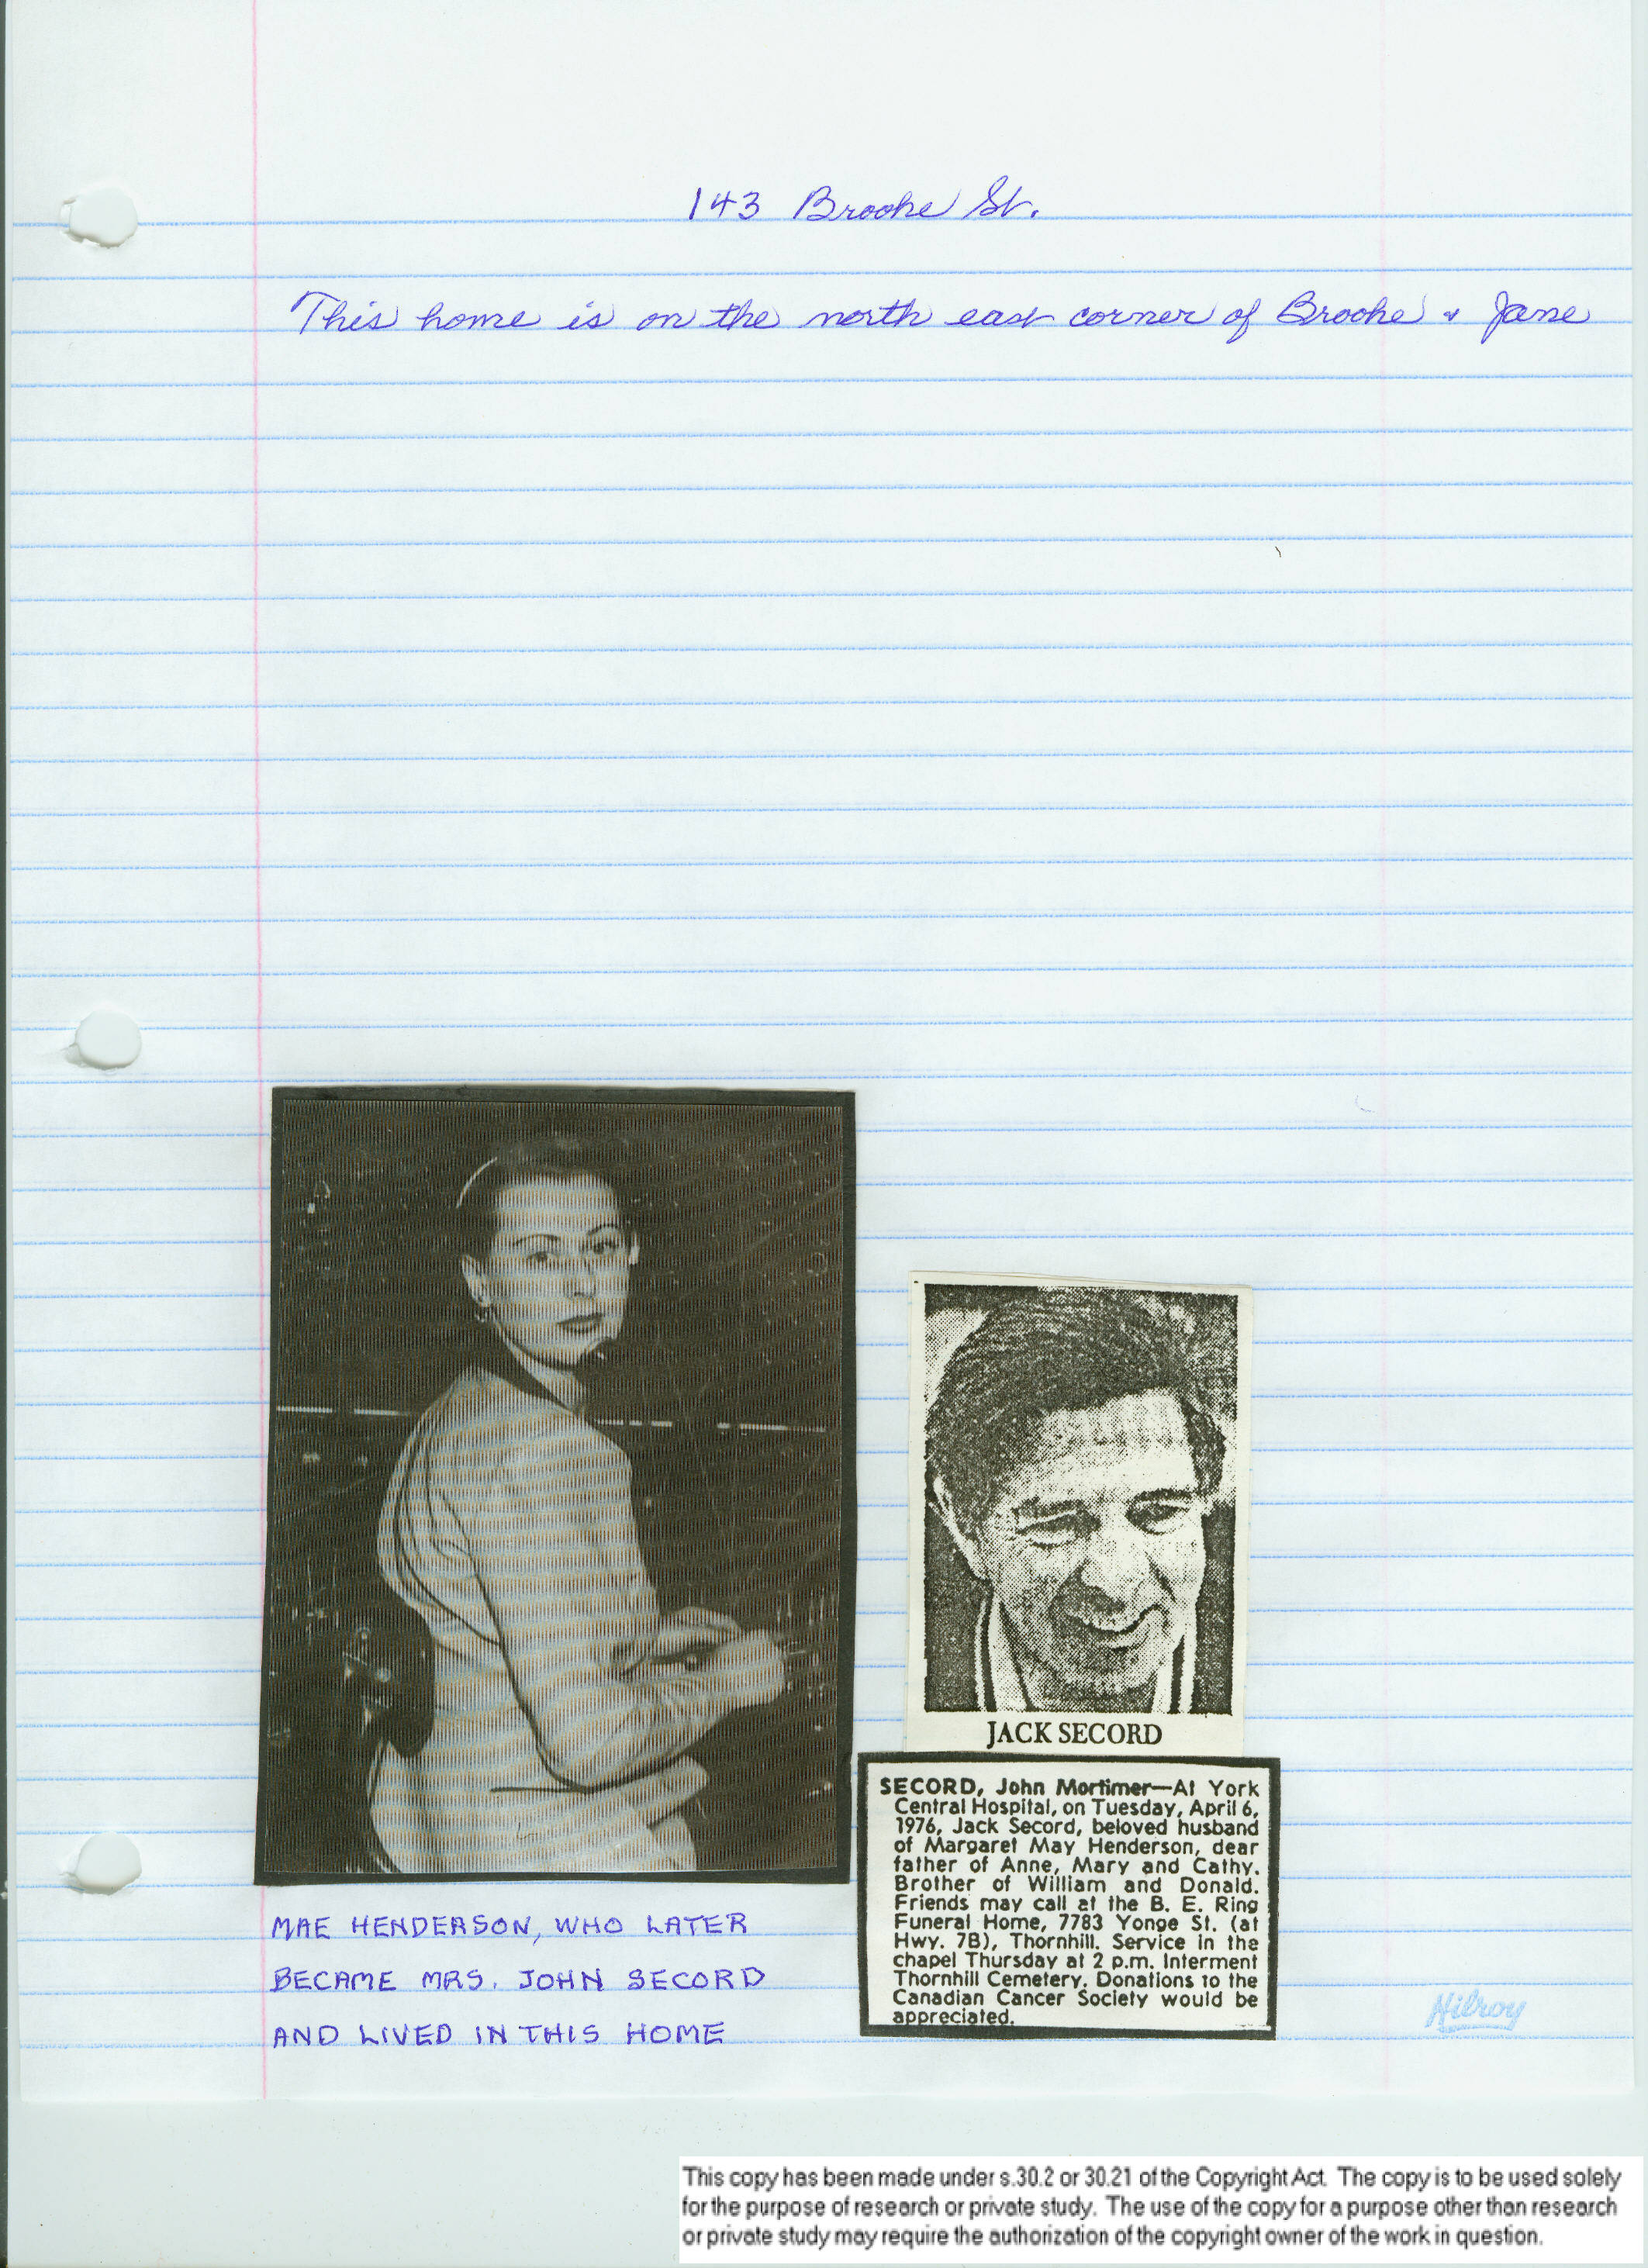 143 Brooke St.
This home is on the north east corner of Brooke & Jane
JACK SECORD
SECORD, John Mortimer—At York
Central Hospital, on Tuesday, April 6,
1976, Jack Secord, beloved husband
of Margaret May Henderson, dear
father of Anne, Mary and Cathy.
Brother of William and Donald.
Friends may call at the B. E. Ring
Funeral Home, 7783 Yonge St. (at
Hwy. 7B), Thornhill. Service in the
chapel Thursday at 2 p.m. Interment
Thornhill Cemetery. Donations to the
Canadian Cancer Society would be
appreciated.
MAE HENDERSON, WHO LATER
BECAME MRS. JOHN SECORD
AND LIVED IN THIS HOME
Hilroy
This copy has been made under s.30.2 or 30.21 of the Copyright Act. The copy is to be used solely
for the purpose of research or private study. The use of the copy for a purpose other than research
or private study may require the authorization of the copyright owner of the work in question.